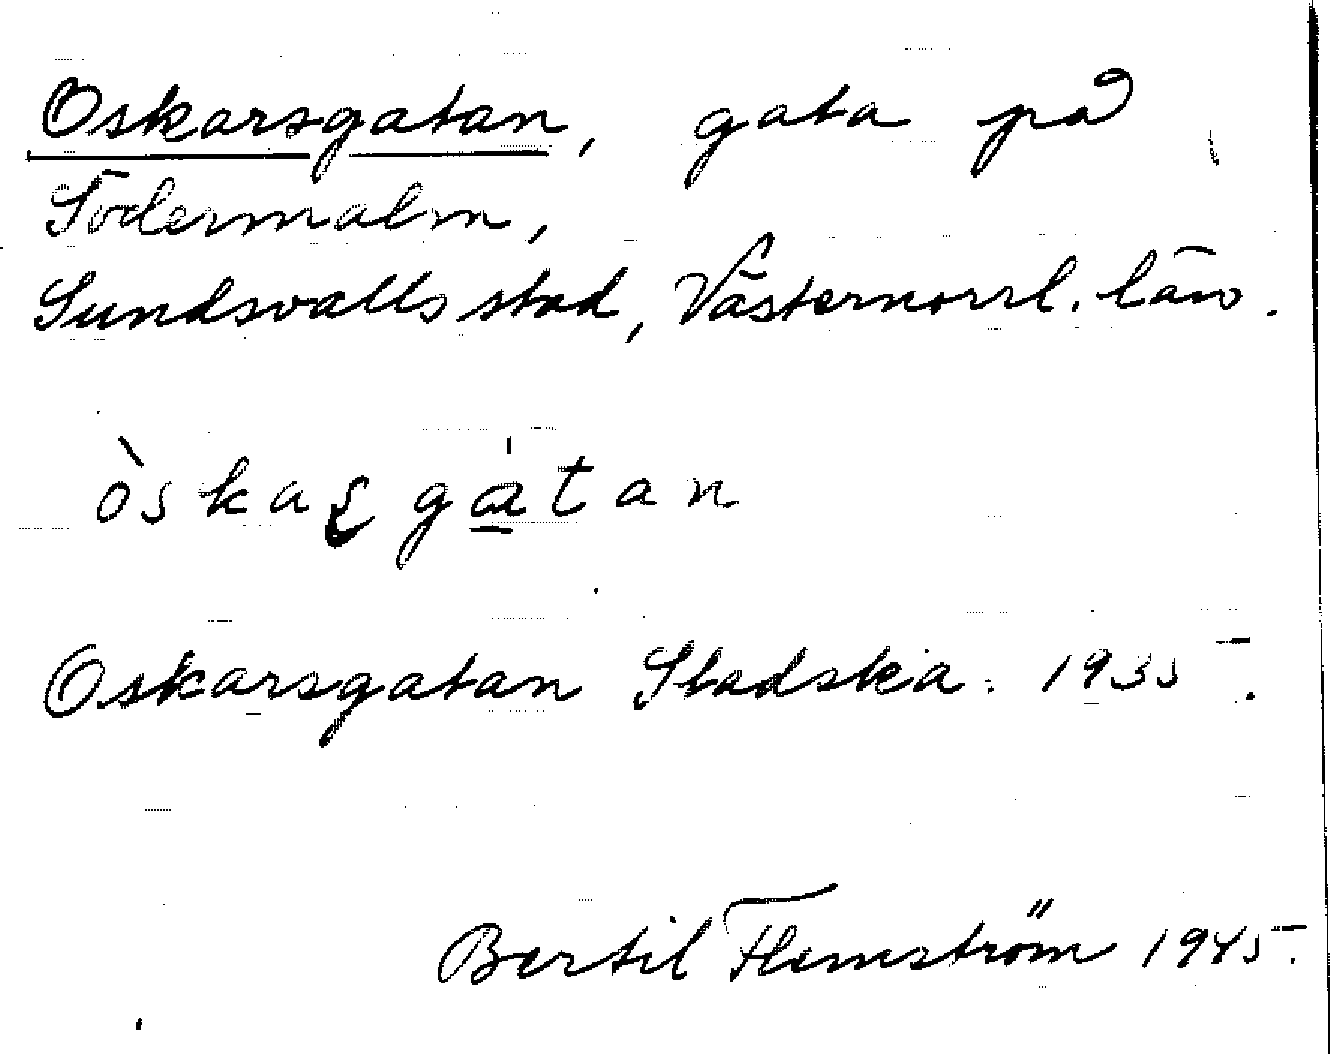 Oskarsgatan, gata på
Södermalm,
Sundsvalls stad, Västernorrl. län.
òskaʂgátan
Oskarsgatan Stadska. 1935.
Bertil Flemström 1945.